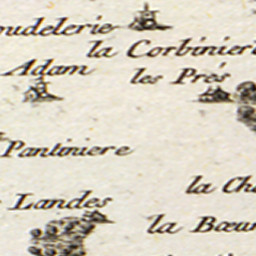 oudelerie
la Corbinier
Adam
les Prés
Pantiniere
la Cha
Landes
la Bœu